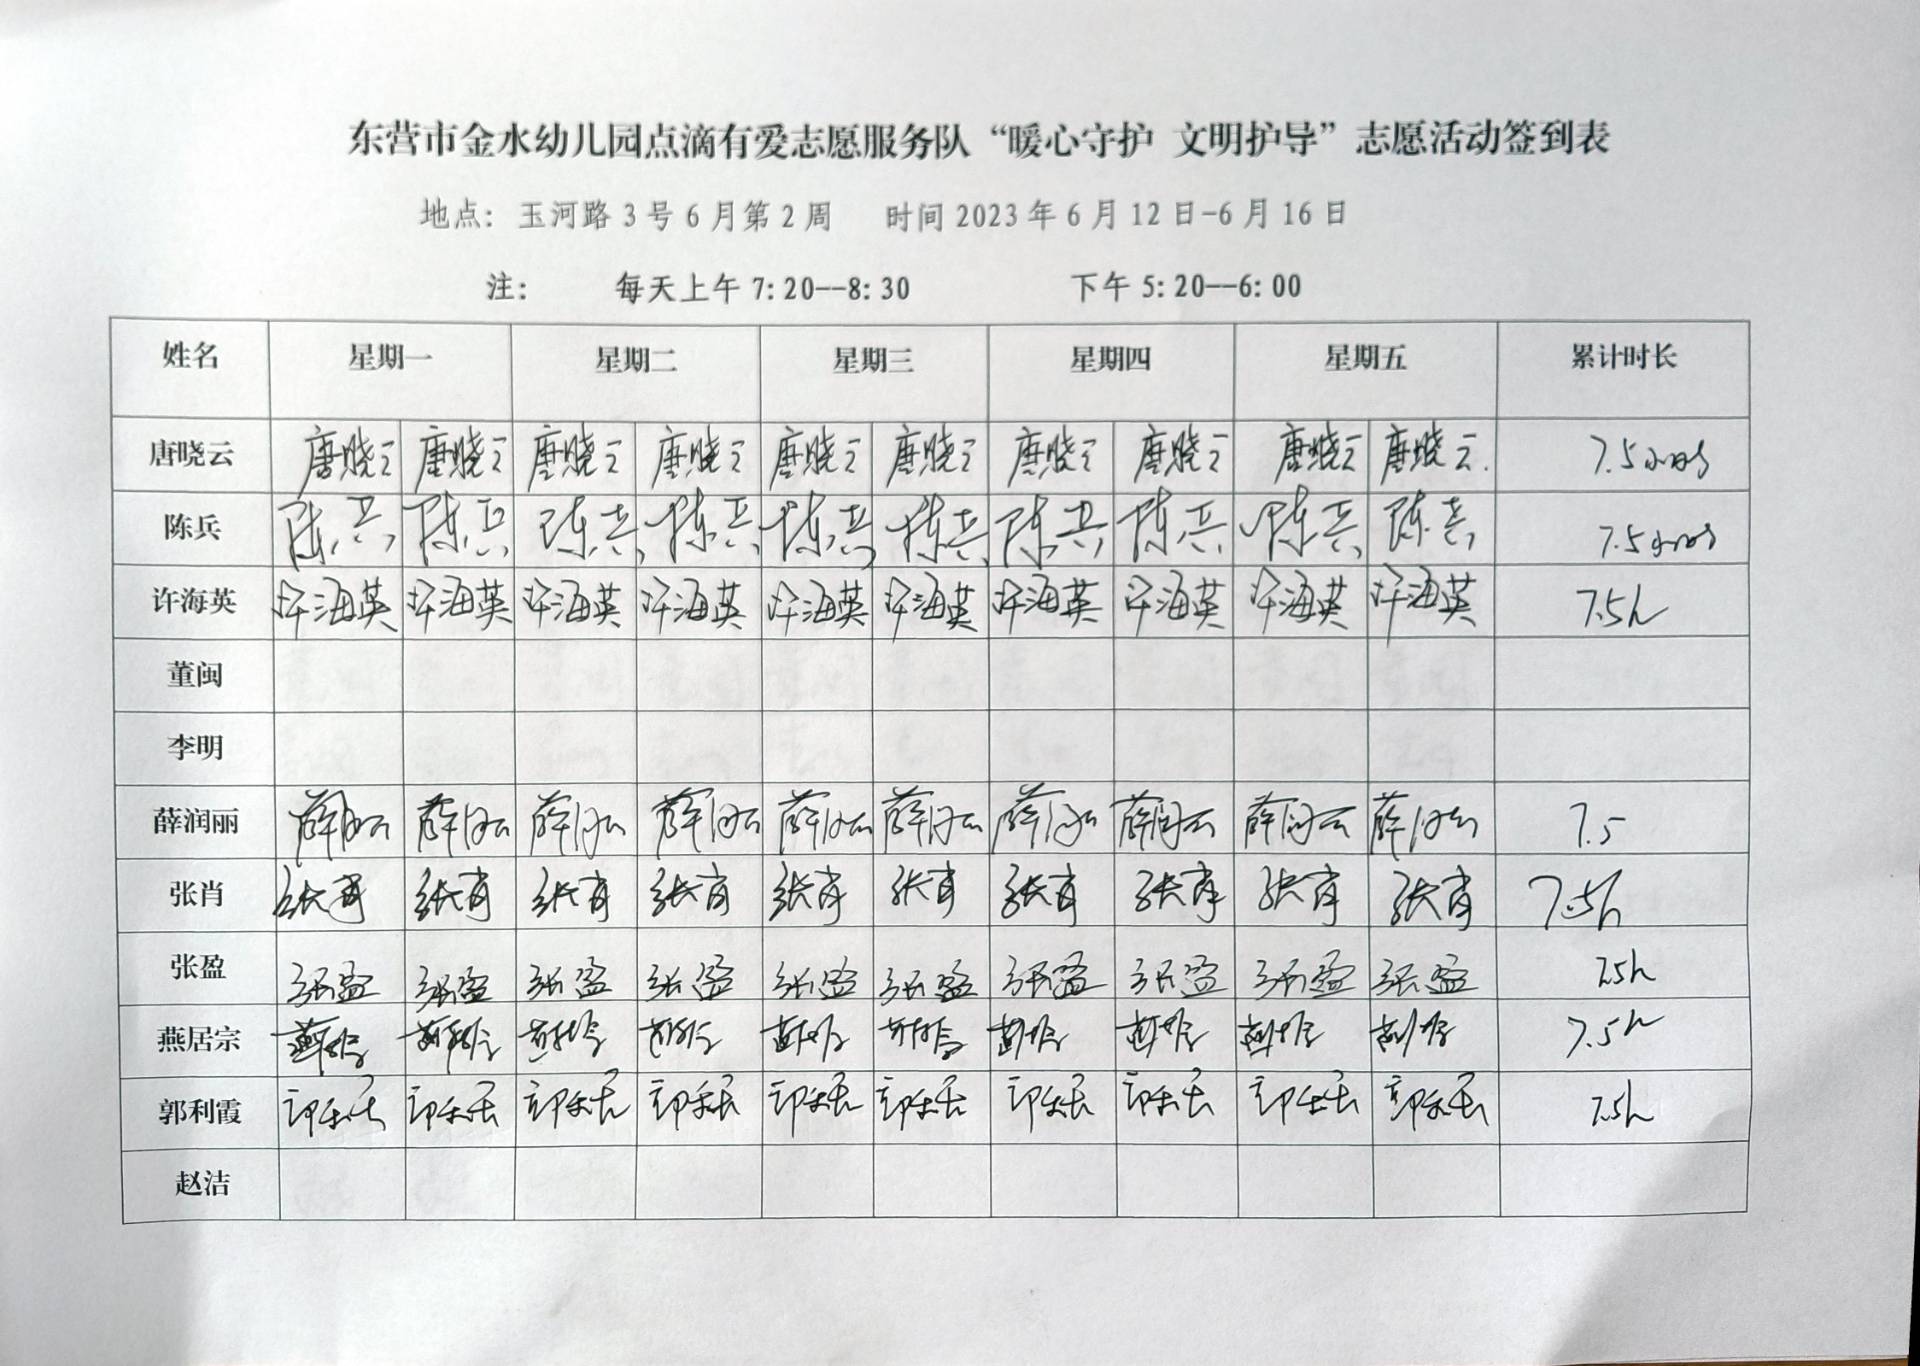 东营市金水幼儿园点滴有爱志愿服务队“暖心守护 文明护导”志愿活动签到表
地点：玉河路3号6月第2周 时间2023年6月12日-6月16日
注： 每天上午7:20--8:30 下午5:20--6:00
姓名 星期一 星期二 星期三 星期四 星期五 累计时长
唐晓云 唐晓云 唐晓云 唐晓云 唐晓云 唐晓云 唐晓云 唐晓云 唐晓云 唐晓云 唐晓云 7.5小时
陈兵 陈兵 陈兵 陈兵 陈兵 陈兵 陈兵 陈兵 陈兵 陈兵 陈兵 7.5小时
许海英 许海英 许海英 许海英 许海英 许海英 许海英 许海英 许海英 许海英 许海英 7.5h
董闽
李明
薛润丽 薛润丽 薛润丽 薛润丽 薛润丽 薛润丽 薛润丽 薛润丽 薛润丽 薛润丽 薛润丽 7.5
张肖 张肖 张肖 张肖 张肖 张肖 张肖 张肖 张肖 张肖 张肖 7.5h
张盈 张盈 张盈 张盈 张盈 张盈 张盈 张盈 张盈 张盈 张盈 7.5h
燕居宗 7.5h
郭利霞 郭利霞 郭利霞 郭利霞 郭利霞 郭利霞 郭利霞 郭利霞 郭利霞 郭利霞 郭利霞 7.5h
赵洁